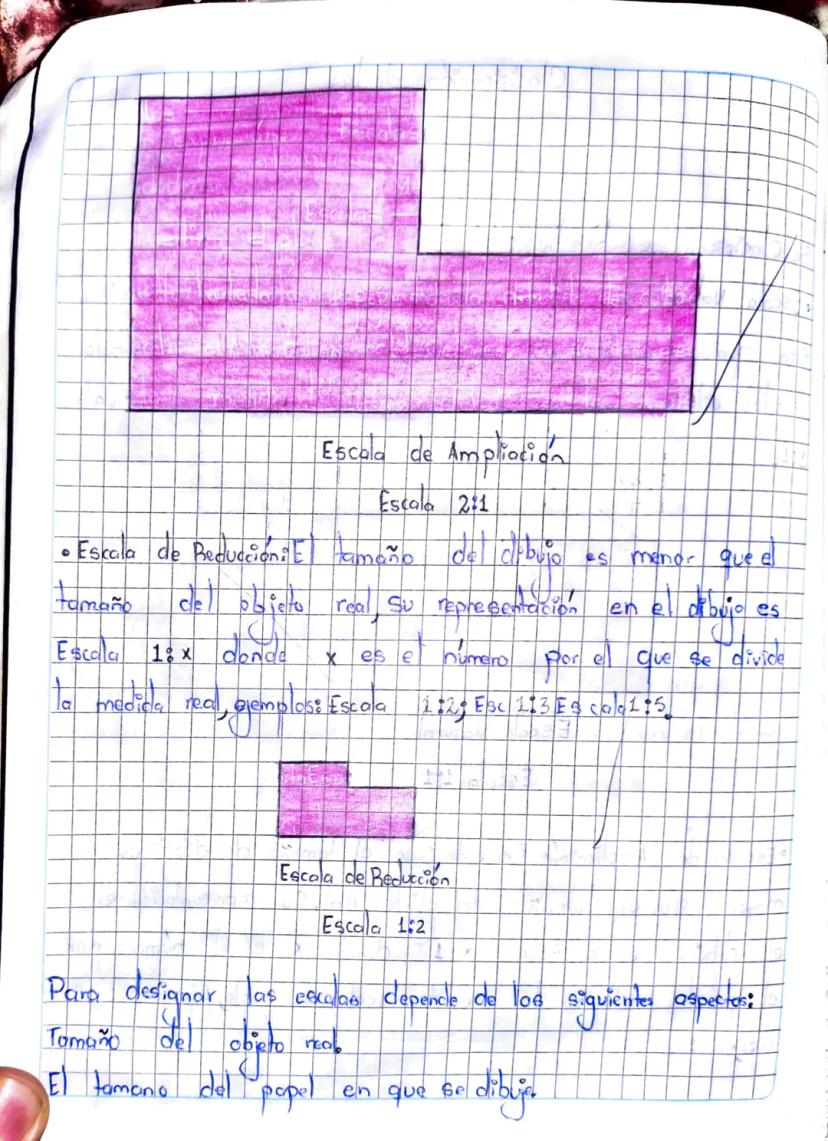 Escala de Ampliación
Escala 2:1
• Escala de Reducción: El tamaño del dibujo es menor que el
tamaño del objeto real, su representación en el dibujo es
Escala 1:x donde x es el número por el que se divide
la medida real, ejemplos: Escala 1:2; Esc 1:3 Escala 1:5.
Escala de Reducción
Escala 1:2
Para designar las escalas depende de los siguientes aspectos:
Tamaño del objeto real.
El tamano del papel en que se dibuja.